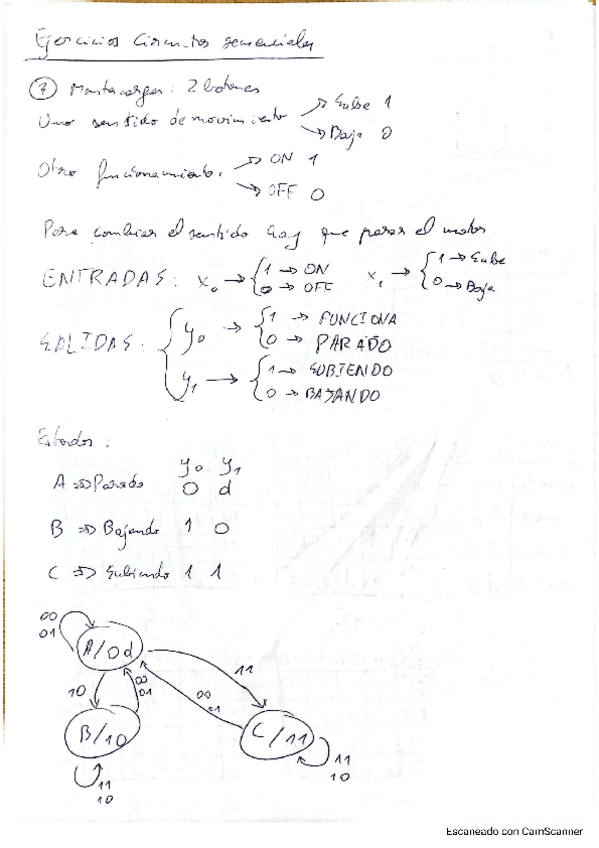 Ejercicios Circuitos secuenciales
7 Montacargas: 2 botones
Uno sentido de movimiento → Sube 1
→ Baja 0
Otro funcionamiento. → ON 1
→ OFF 0
Para cambiar el sentido hay que parar el motor
ENTRADAS: x₀ → { 1 → ON x₁ → { 1 → Sube
0 → OFF 0 → Baja
SALIDAS: { y₀ → { 1 → FUNCIONA
0 → PARADO
y₁ → { 1 → SUBIENDO
0 → BAJANDO
Estados:
y₀ y₁
A ⇒ Parado 0 d
B ⇒ Bajando 1 0
C ⇒ Subiendo 1 1
00
01
A/0d
11
10
00
01
00
01
B/10
C/11
11
10
11
10
Escaneado con CamScanner